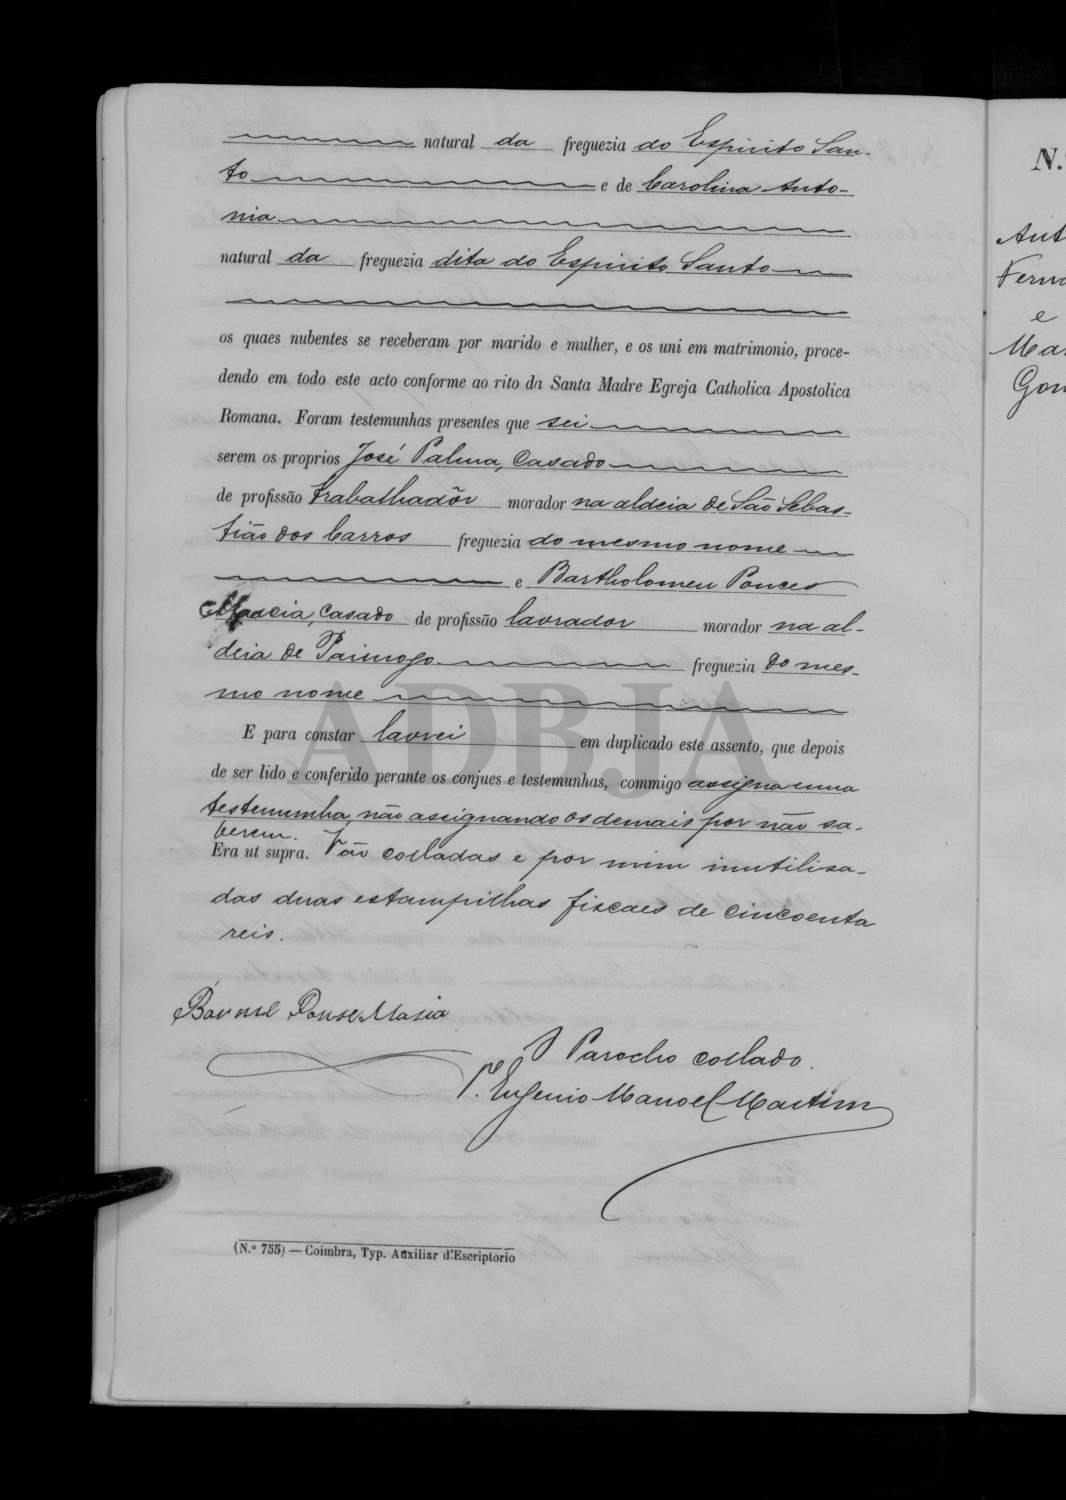 natural da freguezia do Espirito San-
to e de Carolina Anto-
nia
natural da freguezia dita do Espirito Santo
os quaes nubentes se receberam por marido e mulher, e os uni em matrimonio, proce-
dendo em todo este acto conforme ao rito da Santa Madre Egreja Catholica Apostolica
Romana. Foram testemunhas presentes que sei
serem os proprios José Palma, casado
de profissão trabalhadôr morador na aldeia de São Sebas-
tião dos Carros freguezia do mesmo nome
e Bartholomeu Ponces
Macia, casado de profissão lavrador morador na al-
deia de Paimogo freguezia do mes-
mo nome
E para constar lavrei em duplicado este assento, que depois
de ser lido e conferido perante os conjues e testemunhas, commigo assigna uma
testemunha, não assignando os demais por não sa-
berem.
Era ut supra. Vão colladas e por mim inutilisa-
das duas estampilhas fiscaes de cincoenta
reis.
Ponse Masia
O Parocho collado.
P.e Eugenio Manoel Martins
(N.º 755) — Coimbra, Typ. Auxiliar d'Escriptorio
ADBJA
N.º
Ant
Ferna
e
Mar
Gon